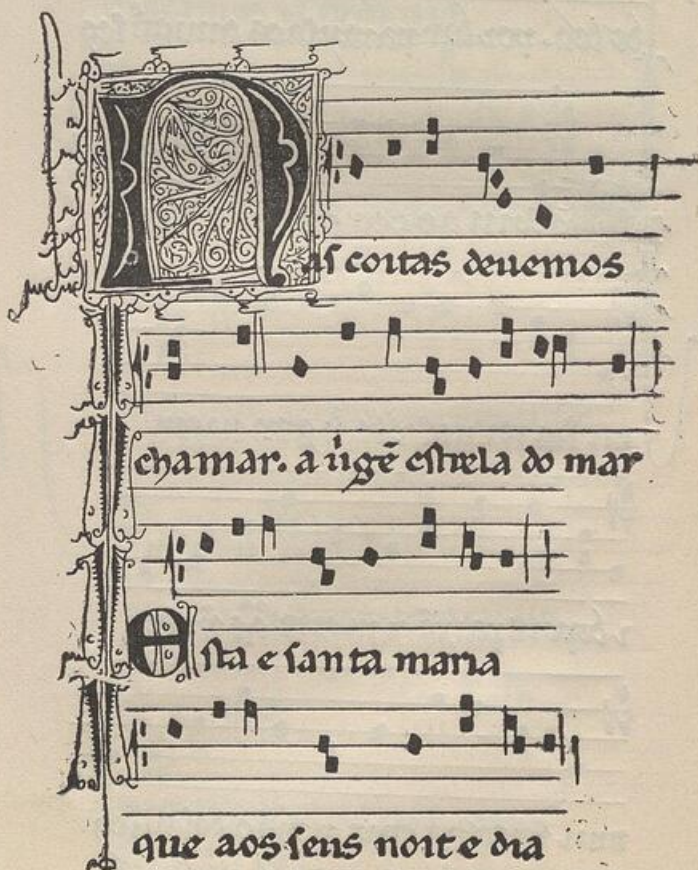 Nas coitas deuemos
chamar. a uigẽ estrela do mar
Esta e santa maria
que aos seus noit e dia